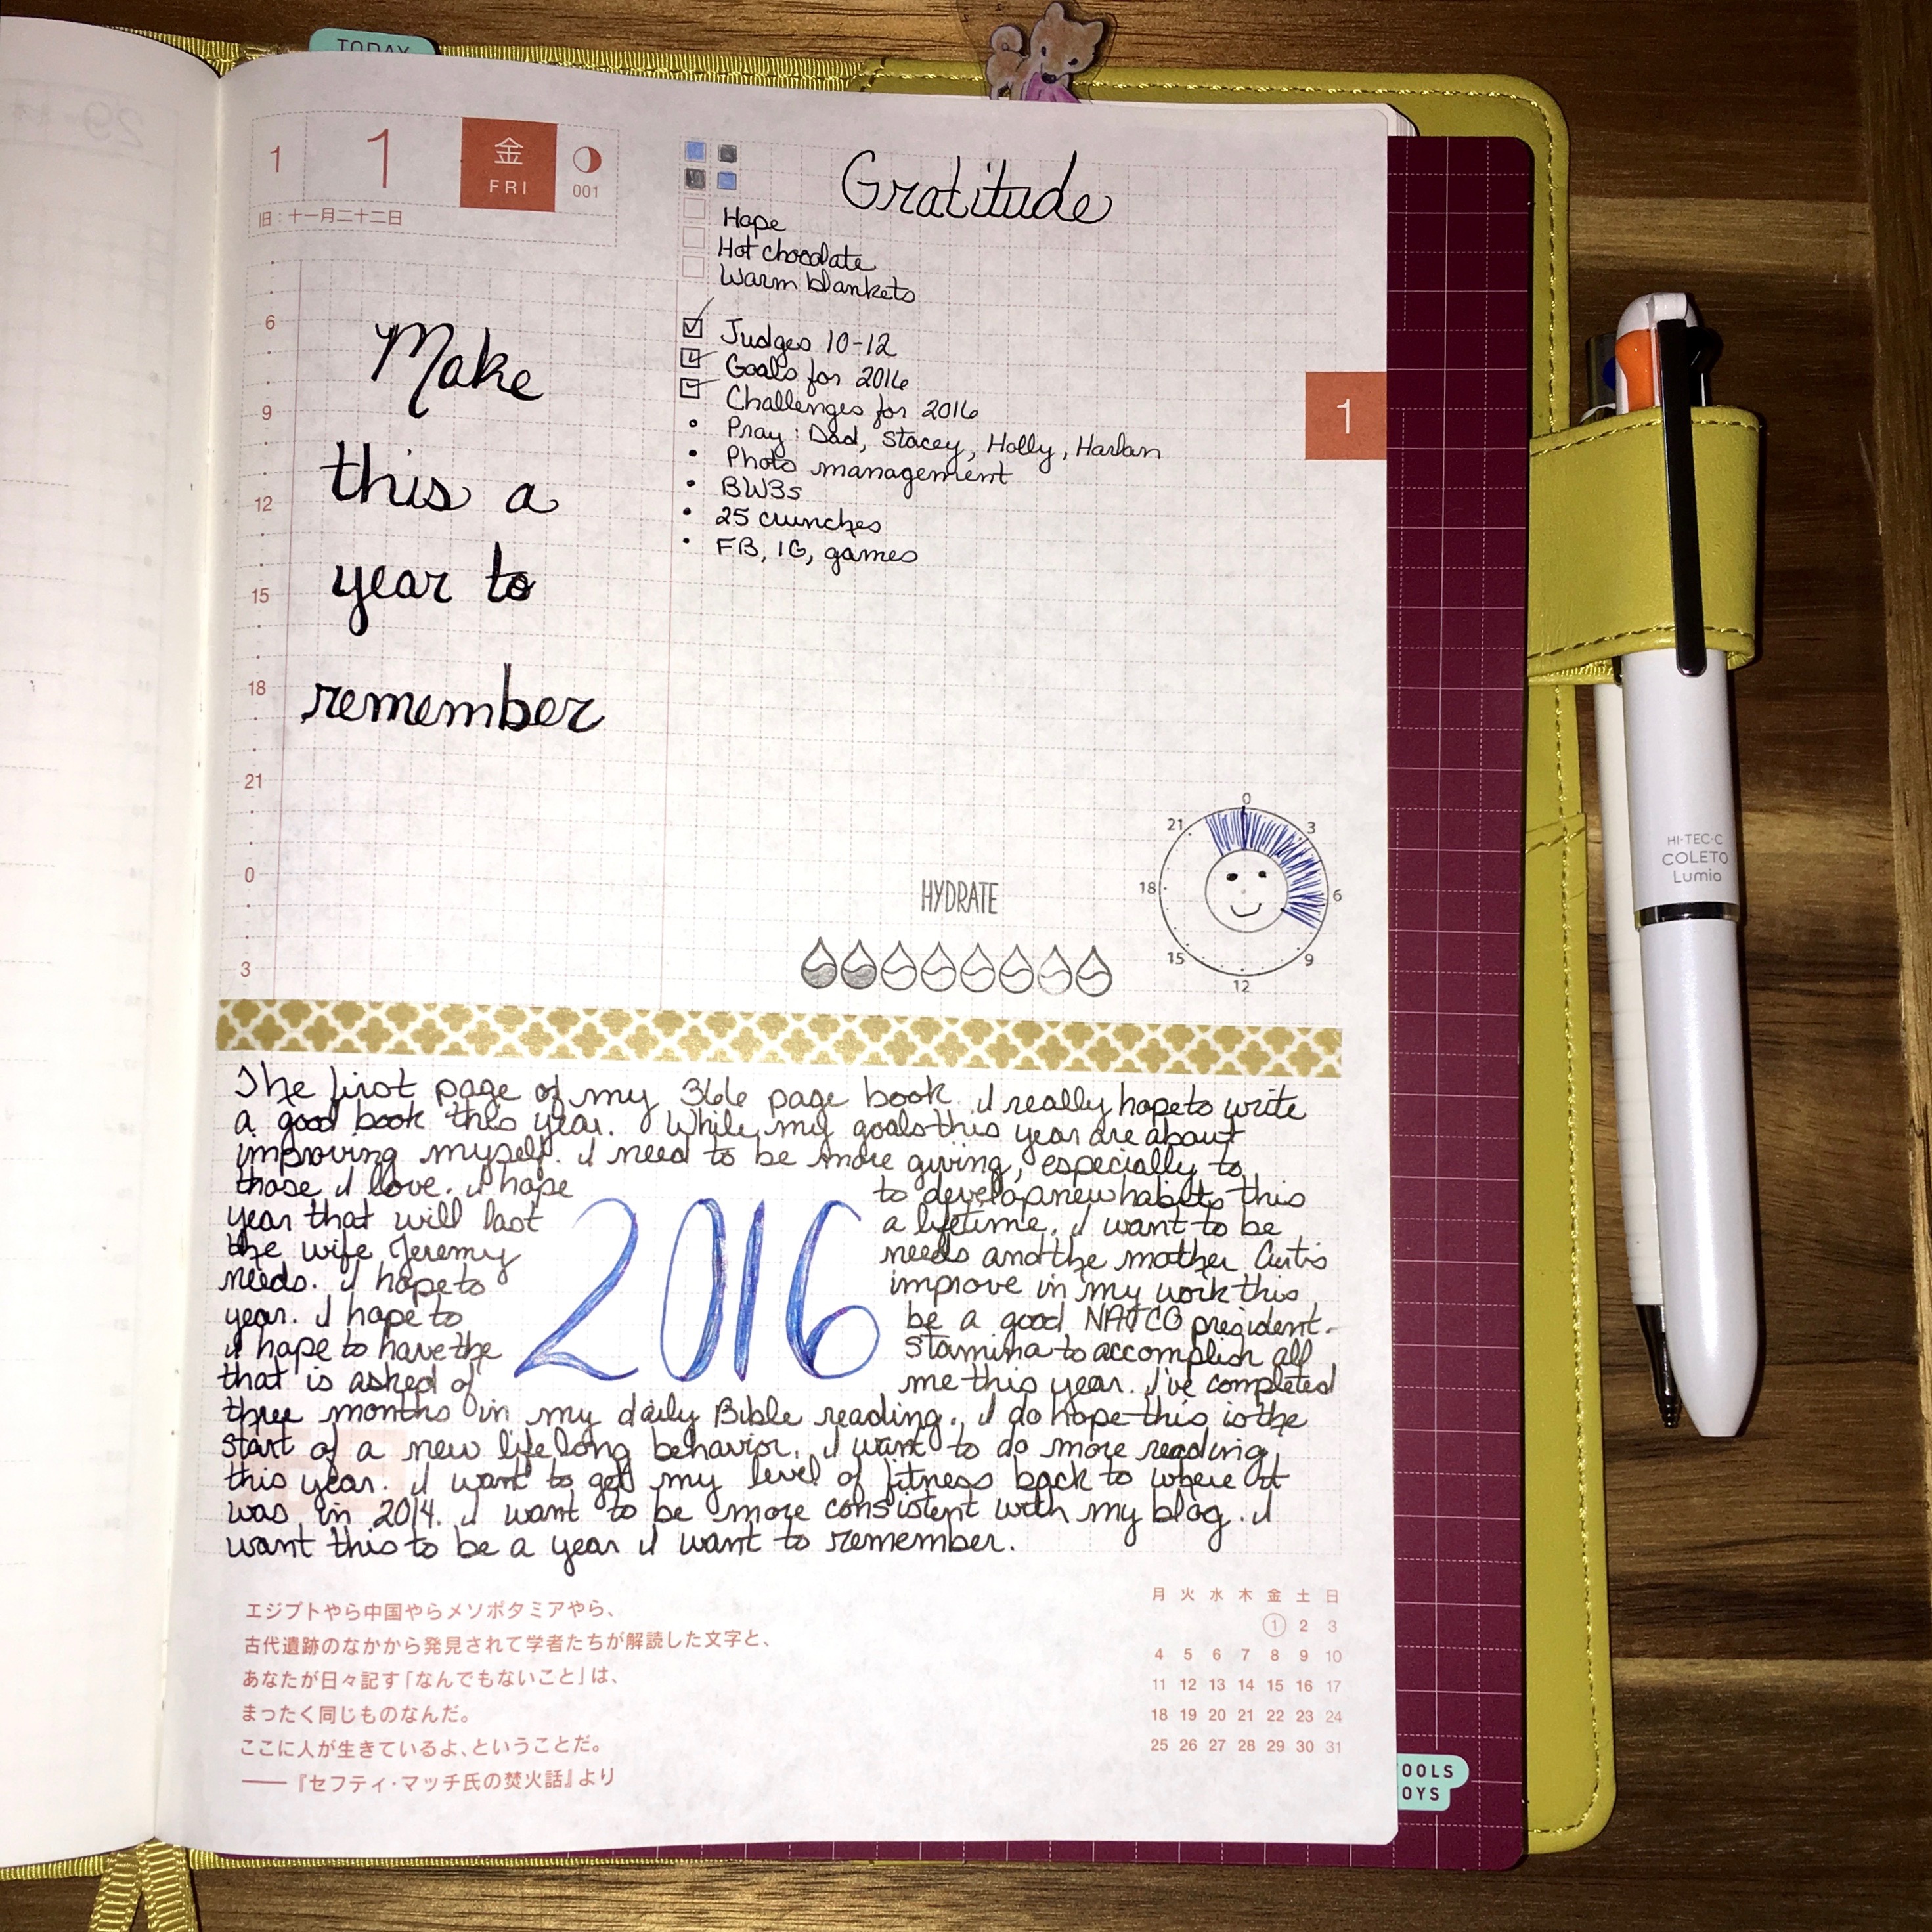 TODAY
1 1 金 FRI 001
旧:十一月二十二日
Gratitude
Hope
Hot chocolate
Warm blankets
Judges 10-12
Goals for 2016
Challenges for 2016
Pray: Dad, Stacey, Holly, Harlan
Photo management
BW3s
25 crunches
FB, IG, games
1
6
9
12
15
18
21
0
3
Make
this a
year to
remember
HYDRATE
0
3
6
9
12
15
18
21
The first page of my 366 page book. I really hope to write
a good book this year. While my goals this year are about
improving myself. I need to be more giving, especially to
those I love. I hope to develop new habits this
year that will last a lifetime. I want to be
the wife Jeremy needs and the mother Curtis
needs. I hope to improve in my work this
year. I hope to be a good NATCO president.
I hope to have the stamina to accomplish all
that is asked of me this year. I've completed
three months in my daily Bible reading. I do hope this is the
start of a new lifelong behavior. I want to do more reading
this year. I want to get my level of fitness back to where it
was in 2014. I want to be more consistent with my blog. I
want this to be a year I want to remember.
2016
エジプトやら中国やらメソポタミアやら、
古代遺跡のなかから発見されて学者たちが解読した文字と、
あなたが日々記す「なんでもないこと」は、
まったく同じものなんだ。
ここに人が生きているよ、ということだ。
——『セフティ・マッチ氏の焚火話』より
月 火 水 木 金 土 日
1 2 3
4 5 6 7 8 9 10
11 12 13 14 15 16 17
18 19 20 21 22 23 24
25 26 27 28 29 30 31
HI-TEC-C
COLETO
Lumio
OOLS
OYS